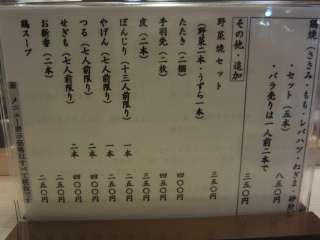 鶏焼(ささみ・もも・レバハツ・ねぎま・砂肝
・セット(五本) 八五〇円
・バラ売りは一人前二本で 三五〇円
その他・追加
野菜焼セット
(野菜二本・うずら一本) 三五〇円
たたき(二種) 五〇〇円
手羽先(二枚) 四〇〇円
皮(二本) 三五〇円
ぼんじり(十三人前限り) 一本 二五〇円
やげん(七人前限り) 一本 二五〇円
つる(七人前限り) 二本 四〇〇円
せぎも(七人前限り) 二本 四〇〇円
お新香(二本) 二五〇円
鶏スープ 二五〇円